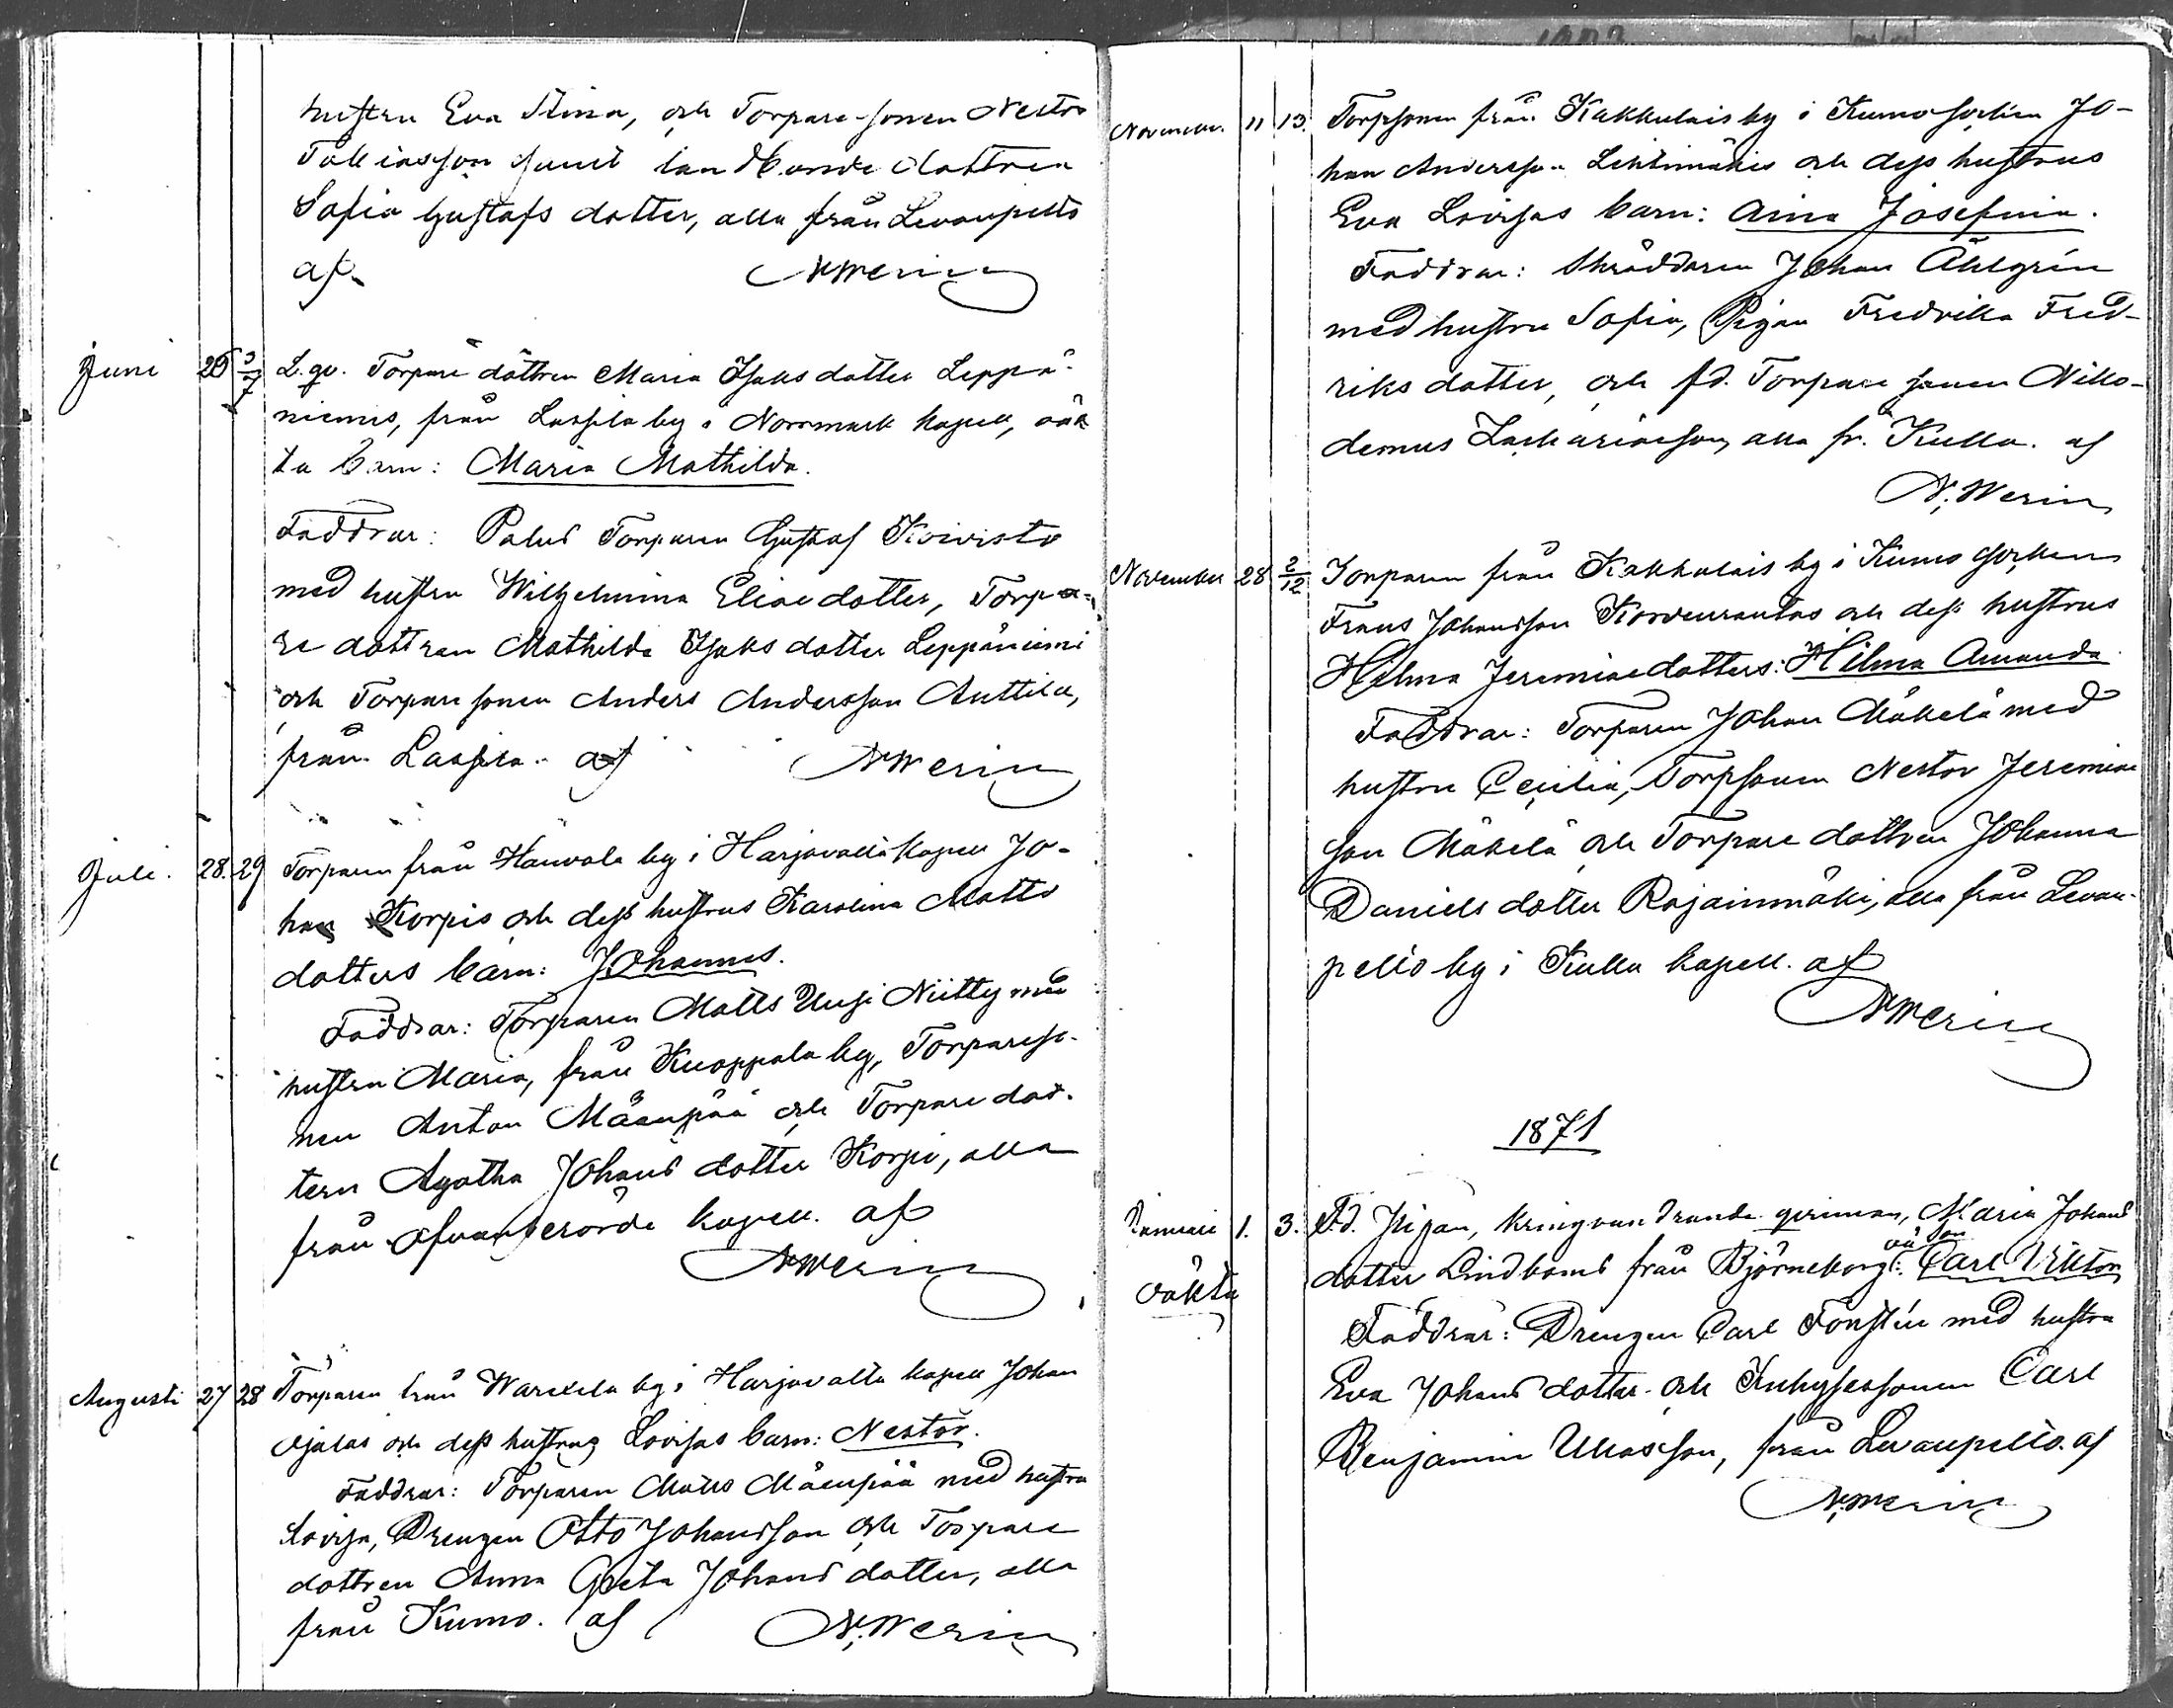 hustru Eva Stina, och Torpare-sonen Nestor
Tobiasson samt landbonde dottren
Sofia Gustafs dotter, alla från Levanpelto
af NWerin
Juni 25 3/7 L. qv. Torpare dottren Maria Isaks dotter Leppä-
niemis, från Lassila by i Norrmark kapell, oäk
ta barn: Maria Mathilda.
Faddrar: Palus Torparen Gustaf Koivisto
med hustru Wilhelmina Eliae dotter, Torpa-
re dottren Mathilda Isaks dotter Leppäniemi
och Torpare sonen Anders Andersson Anttila,
från Lassila. af NWerin
Juli. 28. 29 Torparen från Hauvola by i Harjavalla kapell Jo-
han Korpis och dess hustrus Karolina Matts
dotters barn: Johannes.
Faddrar: Torparen Matts Uusi Niitty med
hustru Maria, från Knoppala by, Torpareso-
nen Anton Mäenpää och Torpare dot-
tern Agatha Johans dotter Korpi, alla
från ofvanberörde kapell. af
NWerin
Augusti 27 28 Torparen från by i Harjavalla kapell Johan
Ojalas och dess hustrus Lovisas barn: Nestor.
Faddrar: Torparen Matts Mäenpää med hustru
Lovisa, Drengen Otto Johansson och Torpare
dottren Anna Greta Johans dotter, alla
från Kumo. af N. Werin
1903
November. 11 13. Torpsonen från Kakkulais by i Kumo socken Jo-
han Andersson Lehtimäkis och dess hustrus
Eva Lovisas barn: Aina Josefina.
Faddrar: Skräddaren Johan Åhlgrén
med hustru Sofia, Pigan Fredrika Fred-
riks dotter, och fd. Torpare sonen Niko-
demus Zachariasson, alla fr. Kulla. af
N. Werin
November 28 2/12 Torparen från Kakkulais by i Kumo socken
Frans Johansson Korvenrantas och dess hustrus
Hilma Jeremiaedotters: Hilma Amanda
Faddrar: Torparen Johan Mäkelä med
hustru Cecilia, Torpsonen Nestor Jeremiae
son Mäkelä och Torpare dottren Johanna
Daniels dotter Rajainmäki, alla från Levan-
pelto by i Kulla kapell. af
NWerin
1871
Januari 1. 3. F.d. Pigan, kringvandrande qvinnan, Maria Johans
dotter Lindboms från Björneborg: oä son Carl Viktor
oäkta
Faddrar: Drengen Carl Forstén med hustru
Eva Johans dotter och Inhysessonen Carl
Benjamin Ukasson, från Levanpelto. af
N. Werin